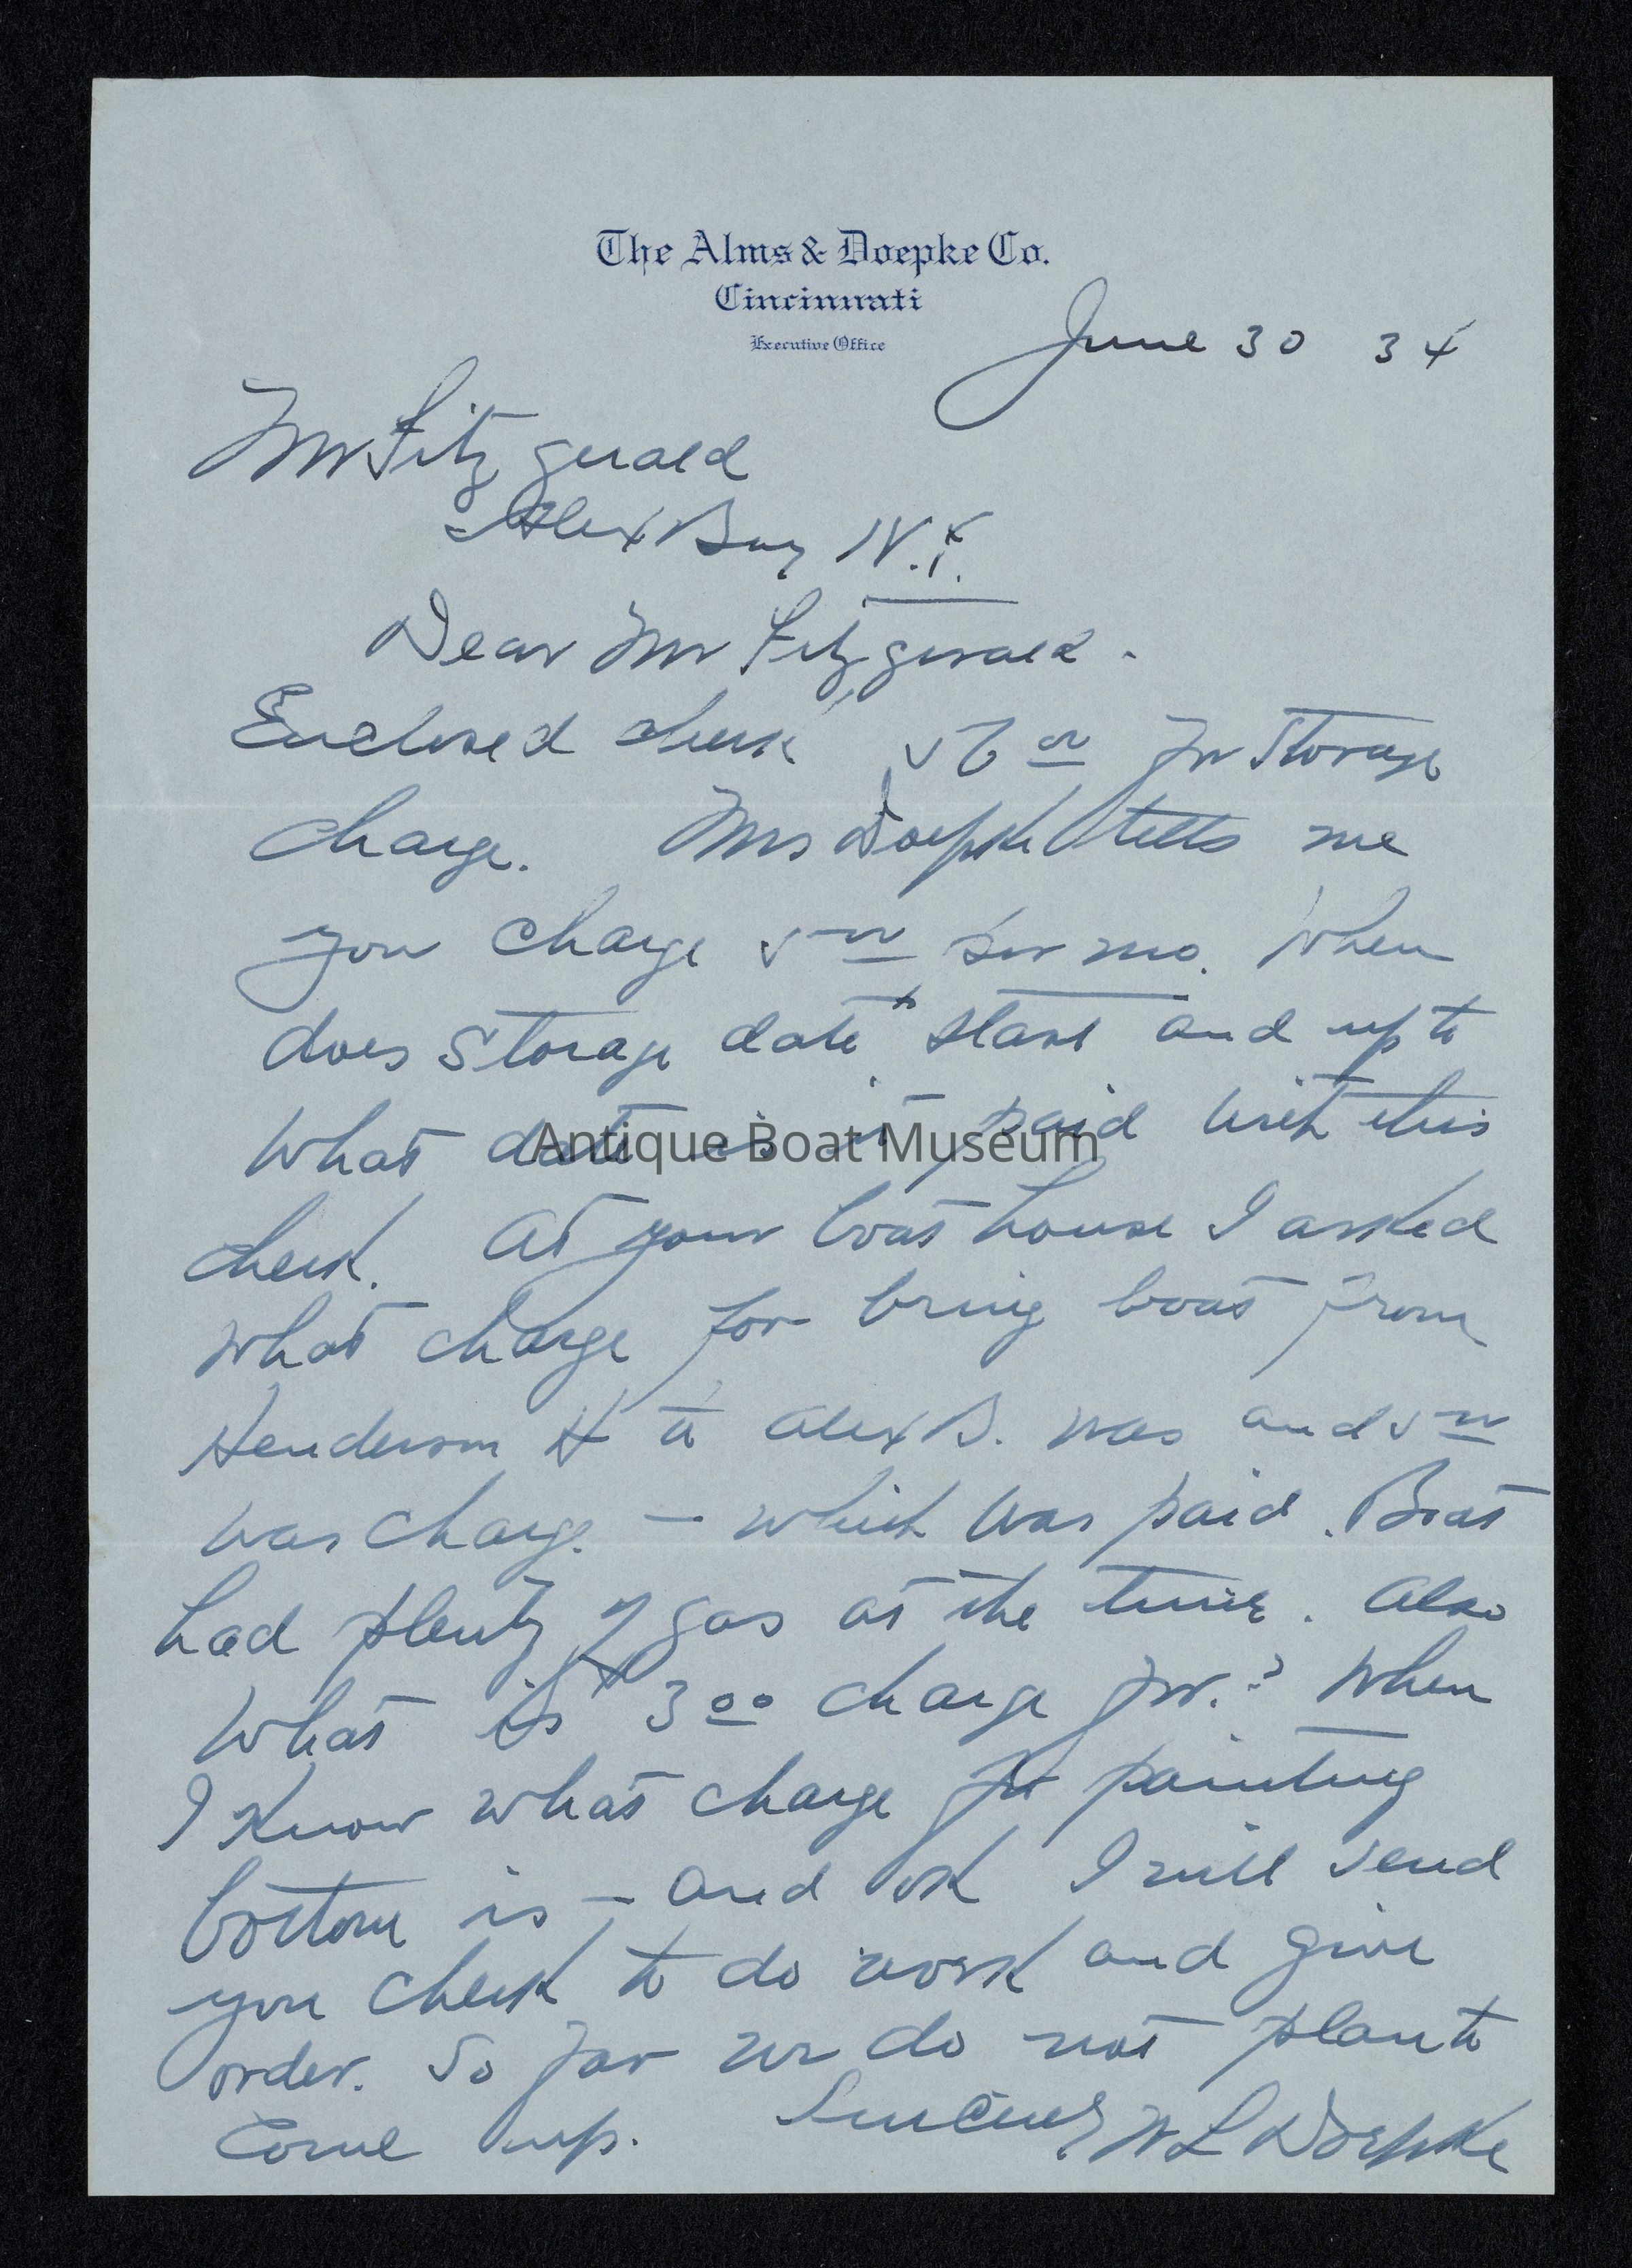 The Alms & Doepke Co.
Cincinnati
Executive Office
June 30 34
Mr Fitzgerald
Alex Bay N.Y.
Dear Mr Fitzgerald.
Enclosed check for Storage
charge. Mrs Doepke tells me
you charge 5 00 per mo. When
does storage date start and up to
what date is it paid with this
check. At your boat house I asked
what charge for bring boat from
Henderson H to Alex B. was and 5 00
was charge. — which was paid. Boat
had plenty of gas at the time. Also
what is 3 00 charge for.? When
I know what charge for painting
bottom is — and ok I will send
you check to do work and give
order. So far we do not plan to
come up. Sincerely W L Doepke
Antique Boat Museum